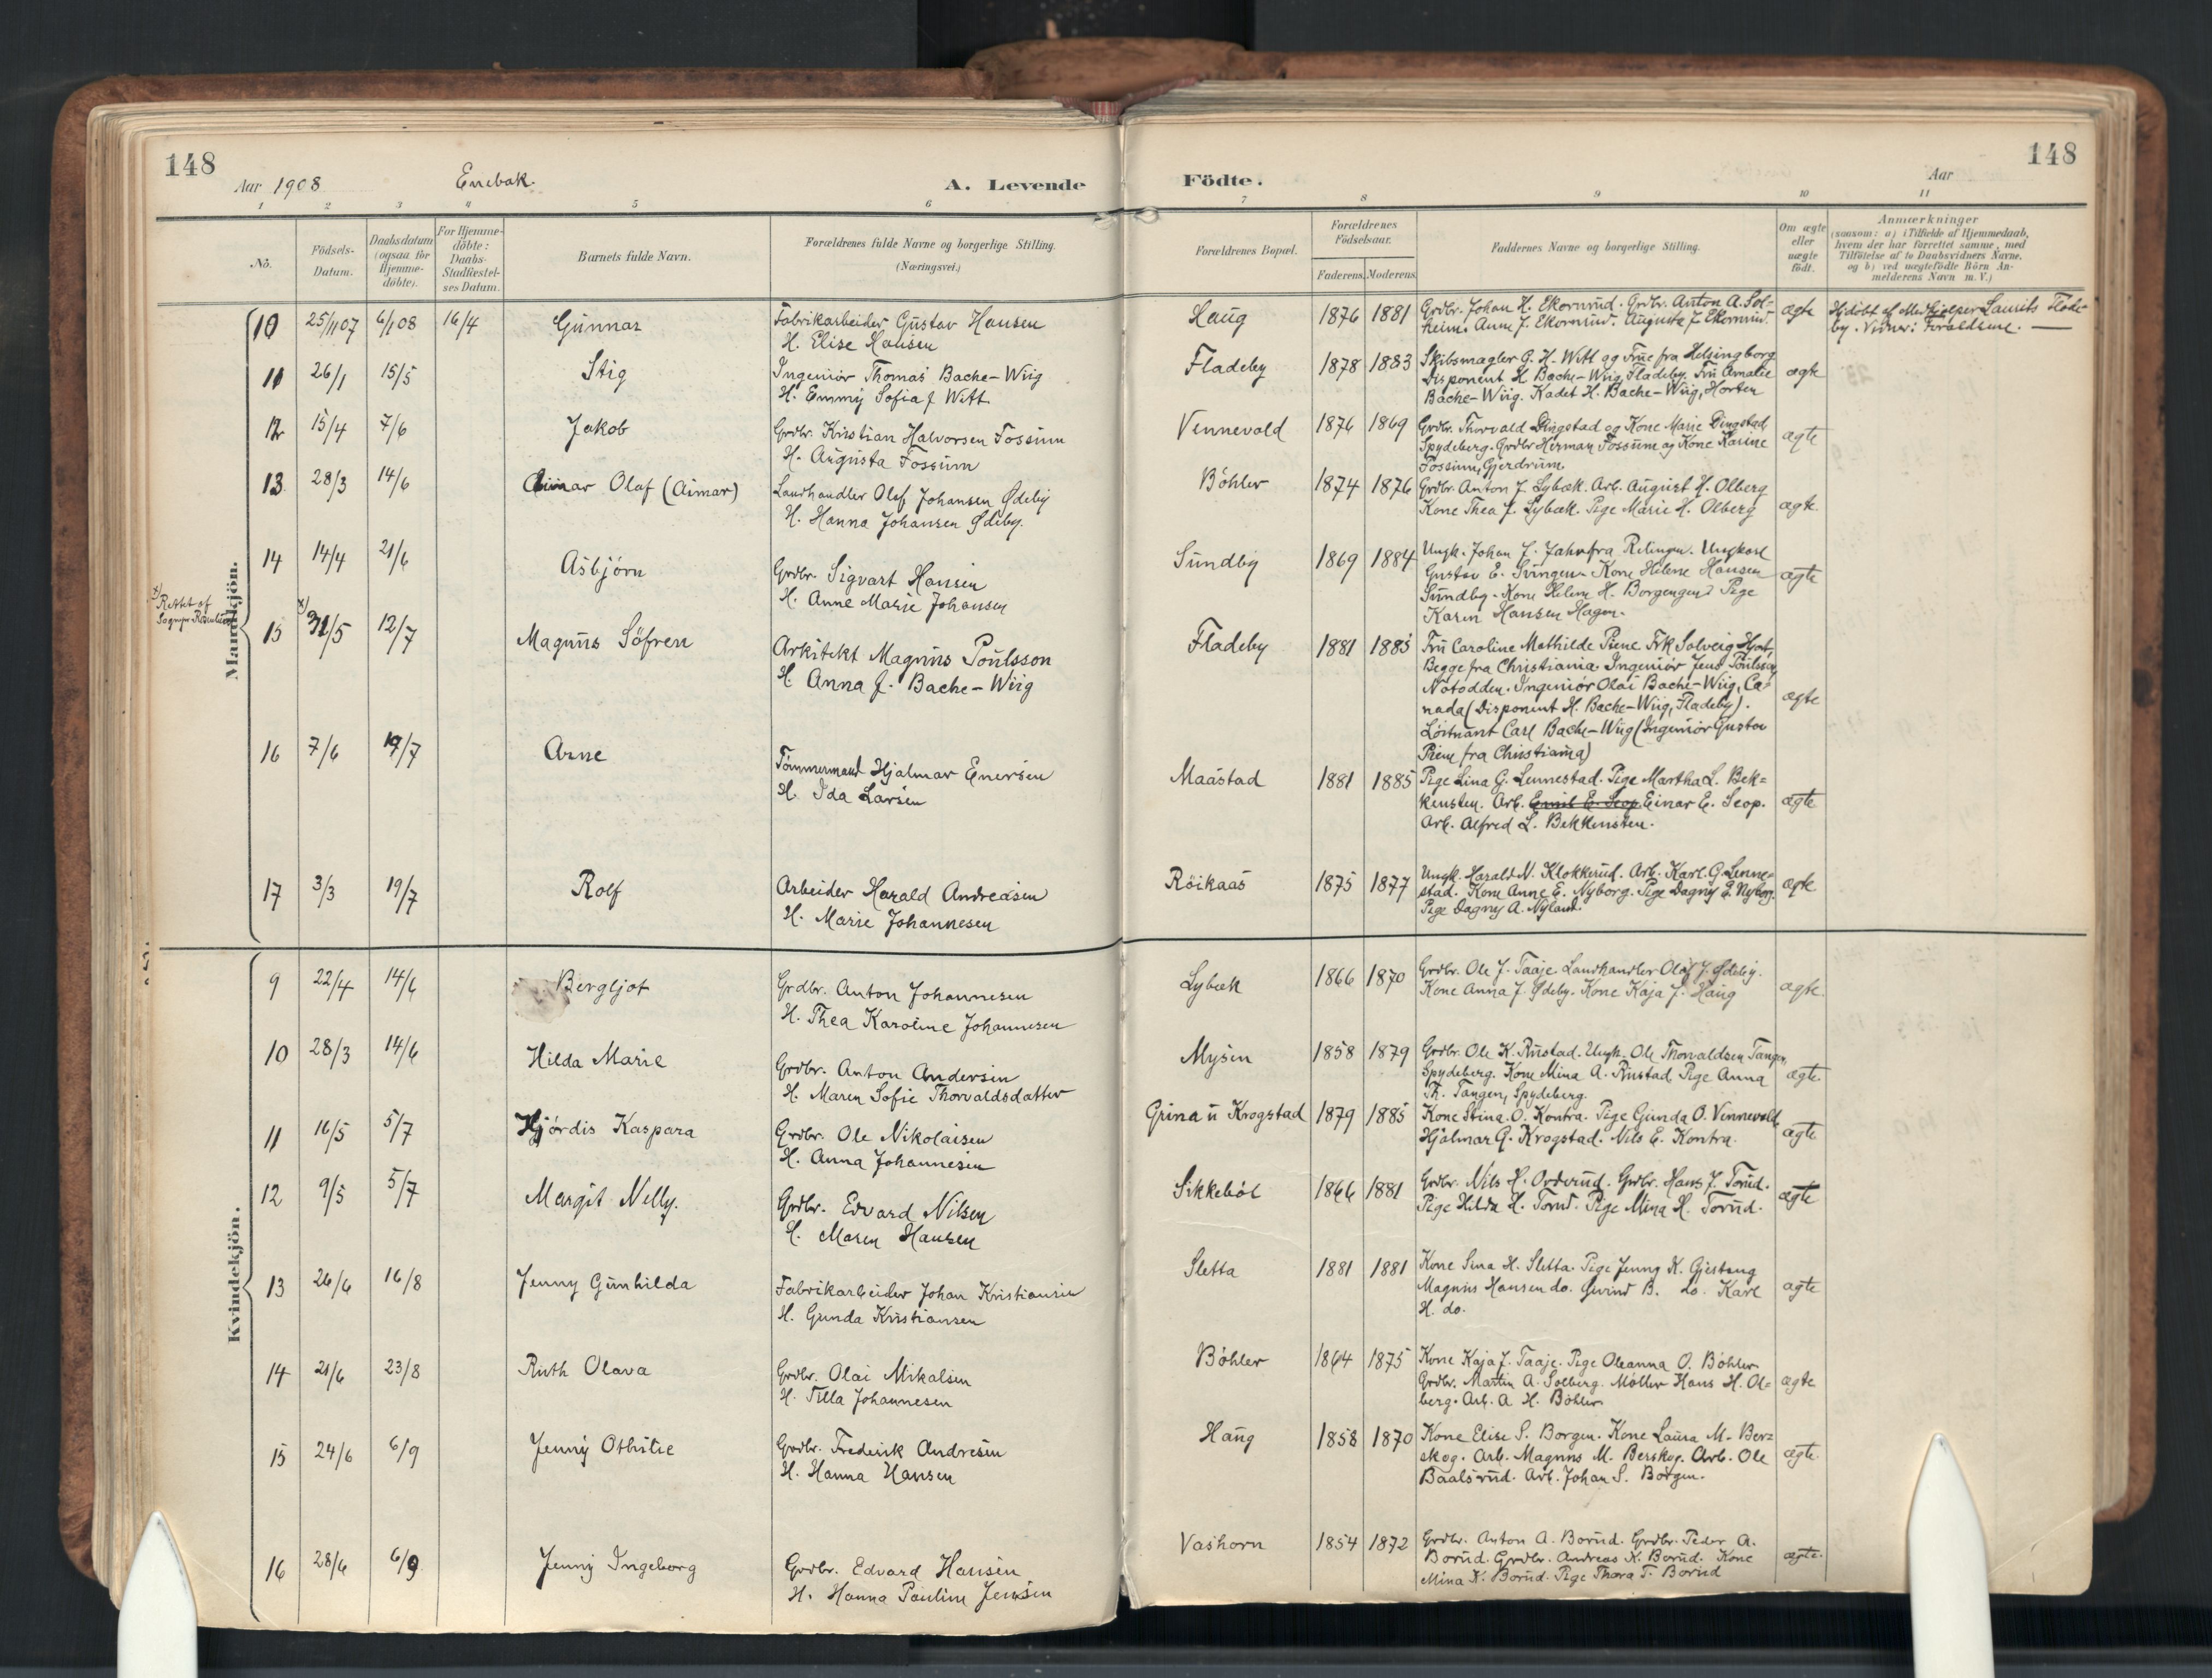 148
Aar 1908
Enebak
A. Levende
1 2 3 4 5 6
Nö.
Födsels-
Datum.
Daabsdatum
(ogsaa for
Hjemme-
döbte).
For Hjemme-
döbte:
Daabs-
Stadfæstel-
ses Datum.
Barnets fulde Navn.
Forældrenes fulde Navne og borgerlige Stilling.
(Næringsvei.)
Födte.
148
Aar
7 8 9 10 11
Forældrenes Bopæl.
Forældrenes
Födselsaar.
Faderens. Moderens.
Faddernes Navne og borgerlige Stilling.
Om ægte
eller
uægte
födt.
Anmærkninger
(saasom: a) i Tilfælde af Hjemmedaab,
hvem der har forrettet samme, med
Tilföielse af to Daabsvidners Navne,
og b) ved uægtefödte Börn An-
melderens Navn m. V.)
Mandkjön.
10 25/11 07 6/1 08 16/4 Gunnar
Fabrikarbeider Gustav Hansen
H. Elise Hansen
Haug 1876 1881
Grdbr. Johan H. Ekornrud. Grdbr. Anton A. Sol-
heim. Anne J. Ekornrud. Augusta J. Ekornrud.
ægte
Hjdöbt af Medhjelper Laurits Flade-
by. Vidner: Forældrene.
11 26/1 15/5 Stig
Ingeniör Thomas Bache-Wiig
H. Emmy Sofia f. Witt
Fladeby 1878 1883
Skibsmægler G. H. Witt og Frue fra Helsingborg
Disponent H. Bache-Wiig, Fladeby. Fru Amalie
Bache-Wiig. Kadet H. Bache-Wiig, Horten
ægte
12 15/4 7/6 Jakob
Grdbr. Kristian Halvorsen Fossum
H. Augusta Fossum
Vennevold 1876 1869
Grdbr. Thorvald Dingstad og Kone Marie Dingstad
Spydeberg. Grdbr Herman Fossum og Kone Karine
Fossum, Gjerdrum.
ægte
13 28/3 14/6 Olaf (Aimar)
Landhandler Olaf Johansen Ødeby
H. Hanna Johansen Ødeby.
Böhler 1874 1876
Grdbr. Anton J. Lybæk. Arb. August H. Olberg
Kone Thea J. Lybæk. Pige Marie H. Olberg
ægte.
14 14/4 21/6 Asbjörn
Grdbr. Sigvart Hansen
H. Anne Marie Johansen
Sundby 1869 1884
Ungk. Johan J. Jahr fra Rælingen. Ungkarl
Gustav E. Svingen. Kone Helene Hansen
Sundby. Kone Helene H. Borgengen. Pige
Karen Hansen Hagen.
ægte
x) Rettet af
Sognepr.
15 x) 31/5 12/7 Magnus Söfren
Arkitekt Magnus Poulsson
H. Anna f. Bache-Wiig
Fladeby 1881 1885
Fru Caroline Mathilde Piene. Frk Solveig Hjort,
Begge fra Christiania. Ingeniör Jens Poulsson,
Notodden. Ingeniör Olai Bache-Wiig, Ca-
nada (Disponent H. Bache-Wiig, Fladeby).
Löitnant Carl Bache-Wiig (Ingeniör Gustav
Piene fra Christiania)
ægte
16 7/6 19/7 Arne
Tömmermand Hjalmar Enersen
H. Ida Larsen
Maastad 1881 1885
Pige Lina G. Lennestad. Pige Martha L. Bek-
kensten. Arb. Emil E. Seop. Einar E. Seop.
Arb. Alfred L. Bekkensten.
ægte
17 3/3 19/7 Rolf
Arbeider Harald Andreasen
H. Marie Johannesen
Röikaas 1875 1877
Ungk. Harald N. Klokkerud. Arb. Karl G. Lenne-
stad. Kone Anne E. Nyborg. Pige Dagny E. Nyborg.
Pige Dagny A. Nyland.
ægte
Kvindekjön.
9 22/4 14/6 Bergljot
Grdbr. Anton Johannesen
H. Thea Karoline Johannesen
Lybæk 1866 1870
Grdbr. Ole J. Taaje. Landhandler Olaf J. Ødeby.
Kone Anna J. Ødeby. Kone Kaja J. Haug
ægte.
10 28/3 14/6 Hilda Marie
Grdbr. Anton Andersen
H. Maren Sofie Thorvaldsdatter
Mysen 1858 1879
Grdbr. Ole K. Rustad. Ungk. Ole Thorvaldsen Tangen,
Spydeberg. Kone Mina A. Rustad. Pige Anna
Th. Tangen, Spydeberg.
ægte.
11 16/5 5/7 Hjördis Kaspara
Grdbr. Ole Nikolaisen
H. Anna Johannesen
Grina u Krogstad 1879 1885
Kone Stina O. Kontra. Pige Gunda O. Vennevold
Hjalmar G. Krogstad. Nils E. Kontra.
ægte
12 9/5 5/7 Margit Nelly.
Grdbr. Edvard Nilsen
H. Maren Hansen
Sikkeböl 1866 1881
Grdbr. Nils H. Ordverud. Grdbr. Hans J. Torud.
Pige Hilda H. Torud. Pige Mina H. Torud.
ægte
13 26/6 16/8 Jenny Gunhilda
Fabrikarbeider Johan Kristiansen
H. Gunda Kristiansen
Sletta 1881 1881
Kone Sina H. Sletta. Pige Jenny K. Gjestang
Magnus Hansen do. Øivind B. do. Karl
H. do.
ægte
14 21/6 23/8 Ruth Olava
Grdbr. Olai Mikalsen
H. Tilla Johannesen
Böhler 1864 1875
Kone Kaja J. Taaje. Pige Oleanna O. Böhler
Grdbr. Martin A. Solberg. Möller Hans H. Ol-
berg. Arb. A. H. Böhler
ægte
15 24/6 6/9 Jenny Othilie
Grdbr. Frederik Andresen
H. Hanna Hansen
Haug 1858 1870
Kone Elise S. Borgen. Kone Laura M. Ber-
skog. Arb. Magnus M. Berskog. Arb. Ole
Baalsrud. Arb. Johan S. Borgen.
ægte.
16 28/6 6/9 Jenny Ingeborg
Grdbr. Edvard Hansen
H. Hanna Pauline Jensen
Vashorn 1854 1872
Grdbr. Anton A. Borud. Grdbr. Peder A.
Borud. Grdbr. Andreas K. Borud. Kone
Mina K. Borud. Pige Thora T. Borud
ægte.